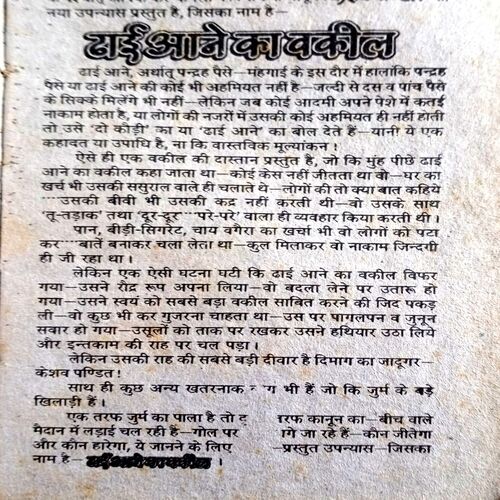 नया उपन्यास प्रस्तुत है, जिसका नाम है—
ढाई आने का वकील
ढाई आने, अर्थात् पन्द्रह पैसे—मंहगाई के इस दौर में हालांकि पन्द्रह
पैसे या ढाई आने की कोई भी अहमियत नहीं है—जल्दी से दस व पांच पैसे
के सिक्के मिलेंगे भी नहीं—लेकिन जब कोई आदमी अपने पेशे में कतई
नाकाम होता है, या लोगों की नजरों में उसकी कोई अहमियत ही नहीं होती
तो उसे 'दो कौड़ी' का या 'ढाई आने' का बोल देते हैं—यानी ये एक
कहावत या उपाधि है, ना कि वास्तविक मूल्यांकन !
ऐसे ही एक वकील की दास्तान प्रस्तुत है, जो कि मुंह पीछे ढाई
आने का वकील कहा जाता था—कोई केस नहीं जीतता था वो—घर का
खर्च भी उसकी ससुराल वाले ही चलाते थे—लोगों की तो क्या बात कहिये
उसकी बीवी भी उसकी कद्र नहीं करती थी—वो उसके साथ
'तू-तड़ाक' तथा 'दूर-दूर परे-परे' वाला ही व्यवहार किया करती थी ।
पान, बीड़ी-सिगरेट, चाय वगैरा का खर्चा भी वो लोगों को पटा
कर बातें बनाकर चला लेता था—कुल मिलाकर वो नाकाम जिन्दगी
ही जी रहा था ।
लेकिन एक ऐसी घटना घटी कि ढाई आने का वकील विफर
गया—उसने रौद्र रूप अपना लिया—वो बदला लेने पर उतारू हो
गया—उसने स्वयं को सबसे बड़ा वकील साबित करने की जिद पकड़
ली—वो कुछ भी कर गुजरना चाहता था—उस पर पागलपन व जुनून
सवार हो गया—उसूलों को ताक पर रखकर उसने हथियार उठा लिये
और इन्तकाम की राह पर चल पड़ा ।
लेकिन उसकी राह की सबसे बड़ी दीवार है दिमाग का जादूगर—
केशव पण्डित !
साथ ही कुछ अन्य खतरनाक भी हैं जो कि जुर्म के बड़े
खिलाड़ी हैं ।
एक तरफ जुर्म का पाला है तो तरफ कानून का—बीच वाले
मैदान में लड़ाई चल रही है—गोल पर जा रहे हैं—कौन जीतेगा
और कौन हारेगा, ये जानने के लिए प्रस्तुत उपन्यास—जिसका
नाम है—ढाई आने का वकील ।